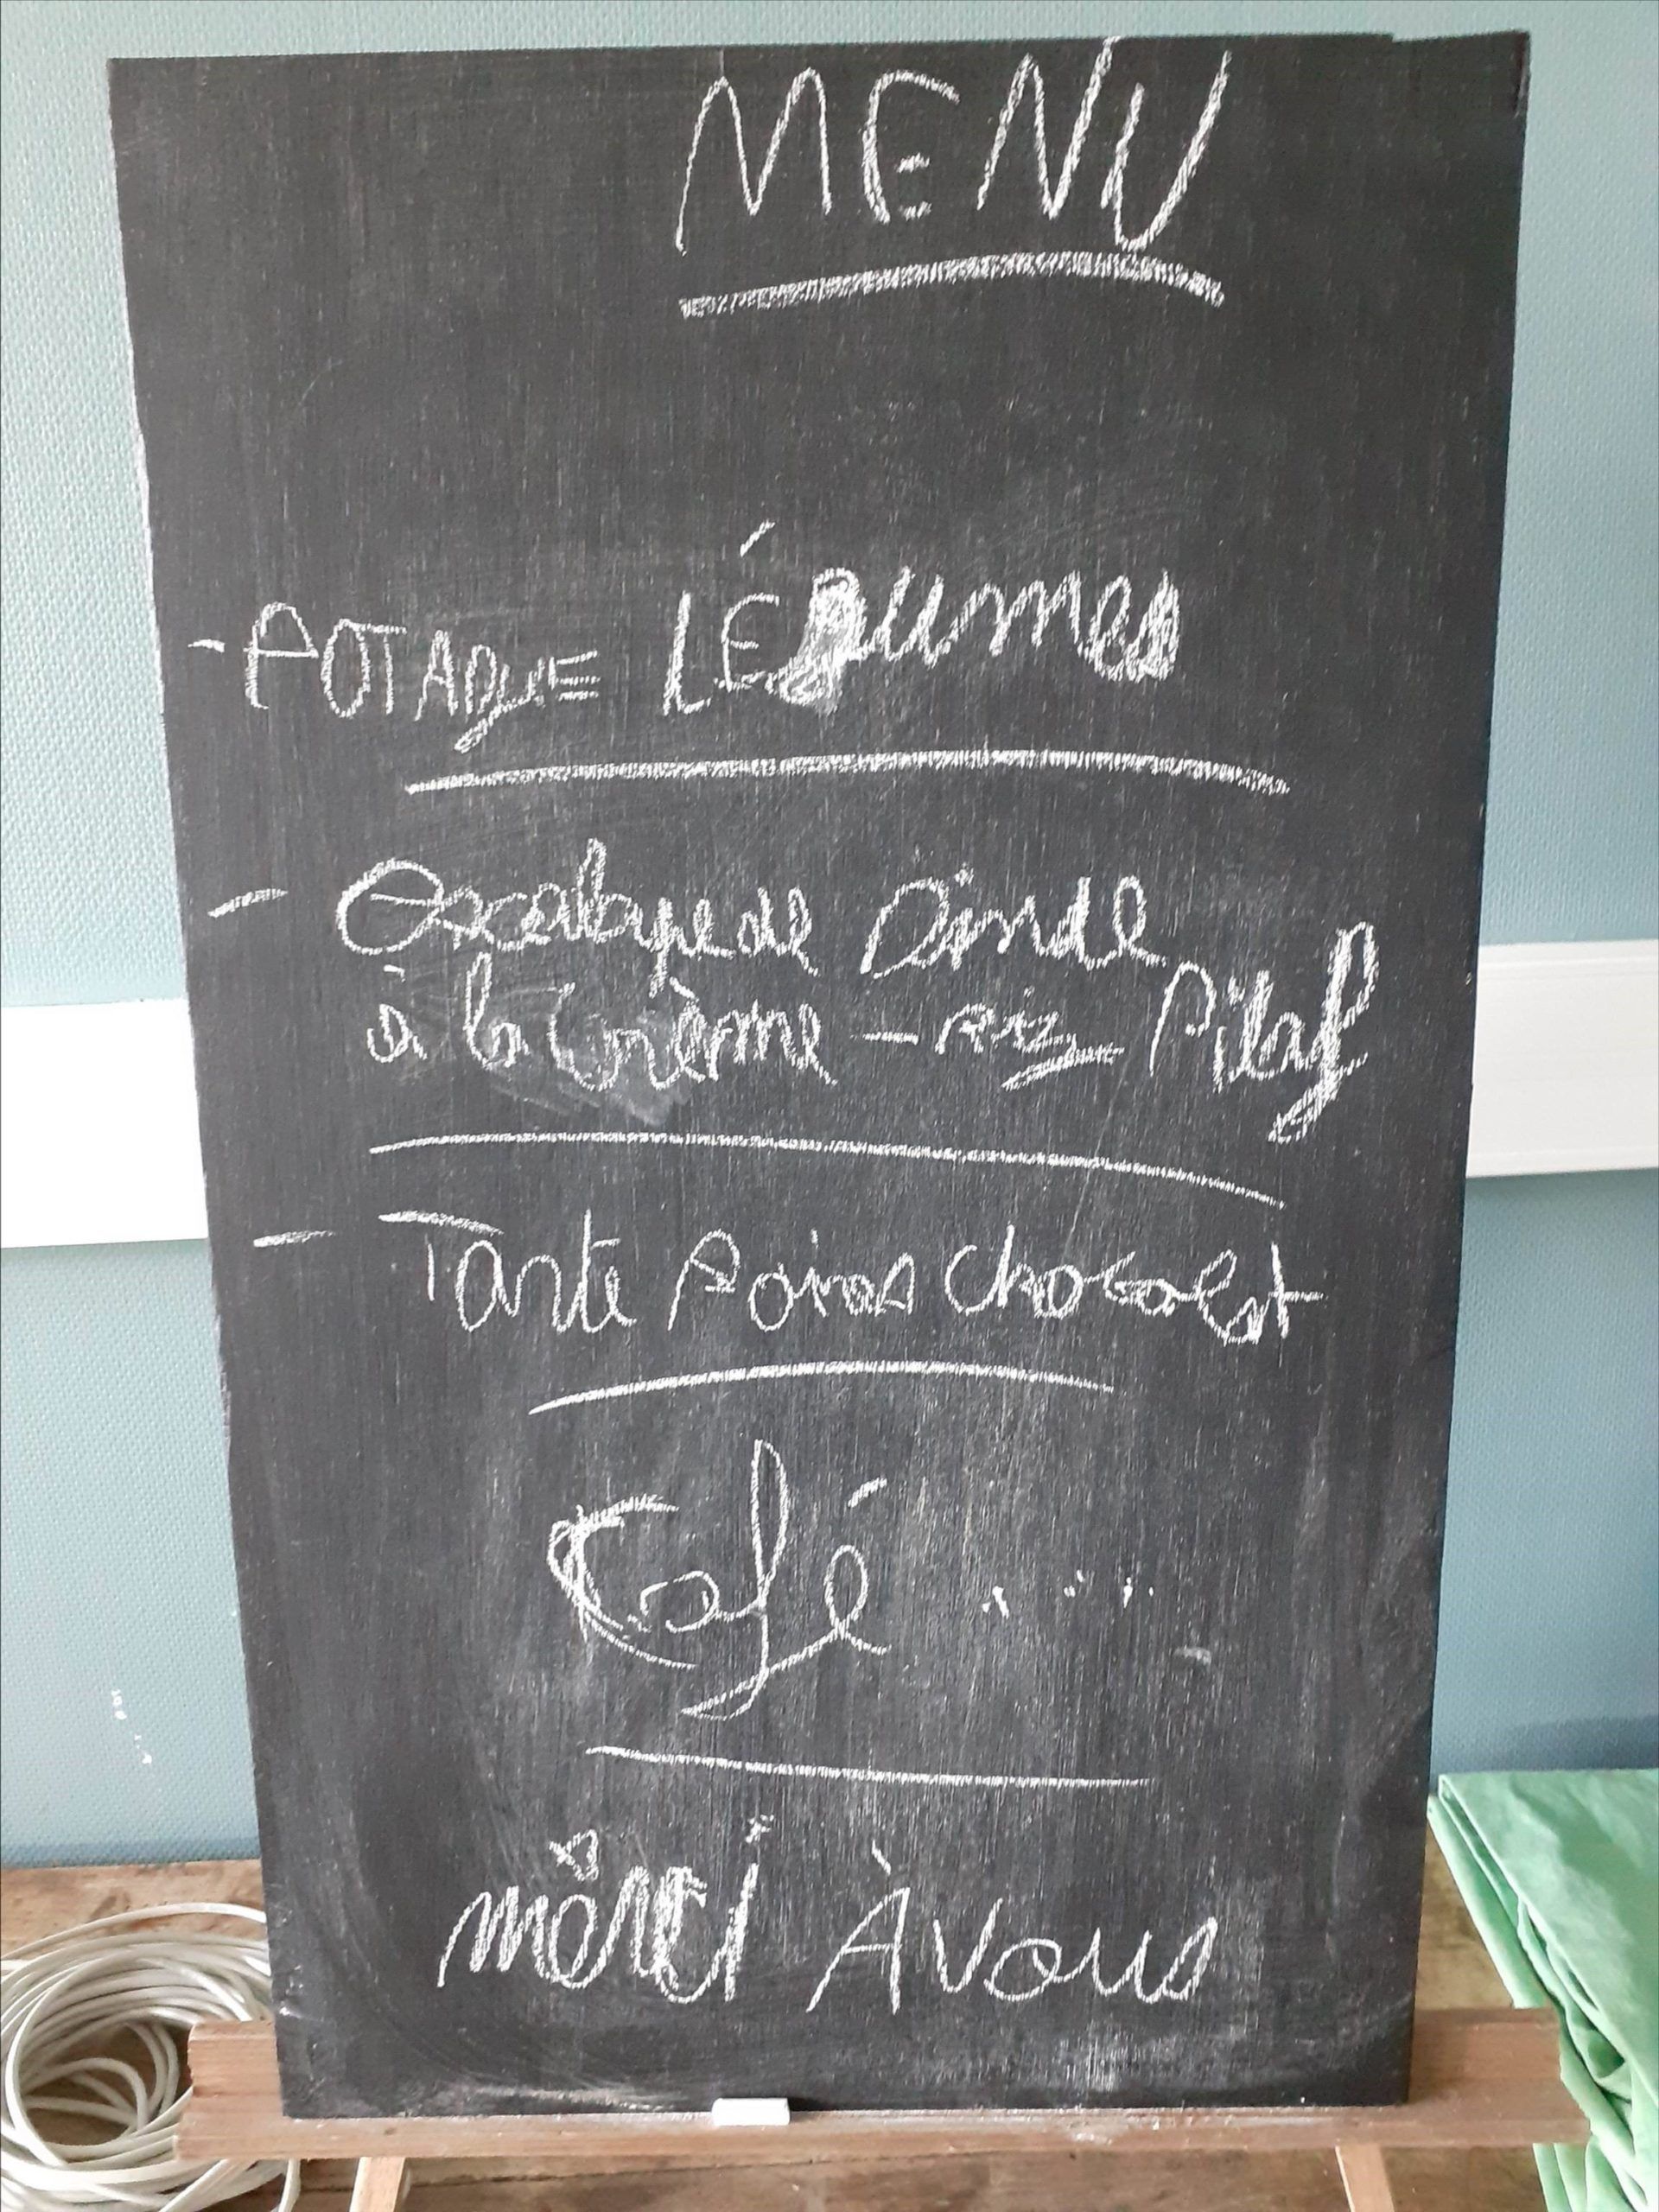 MENU
- POTAgUE LÉgumes
- Escalope de Dinde
à la Crème - Riz Pilaf
- Tarte Poires Chocolat
Café ....
merci À vous